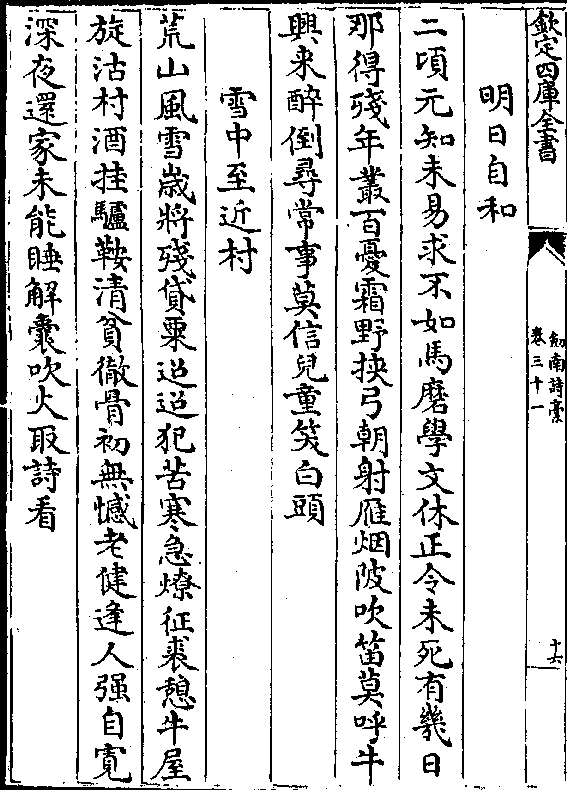 欽定四庫全書
劒南詩稾
卷三十一
十六
明日自和
二頃元知未易求不如馬磨學文休正令未死有幾日
那得殘年叢百憂霜野挾弓朝射雁烟陂吹笛莫呼牛
興来醉倒尋常事莫信兒童笑白頭
雪中至近村
荒山風雪嵗將殘貸粟迢迢犯苦寒急燎征裘憩牛屋
旋沽村酒挂驢鞍清貧徹骨初無憾老健逢人强自寛
深夜還家未能睡解囊吹火取詩看